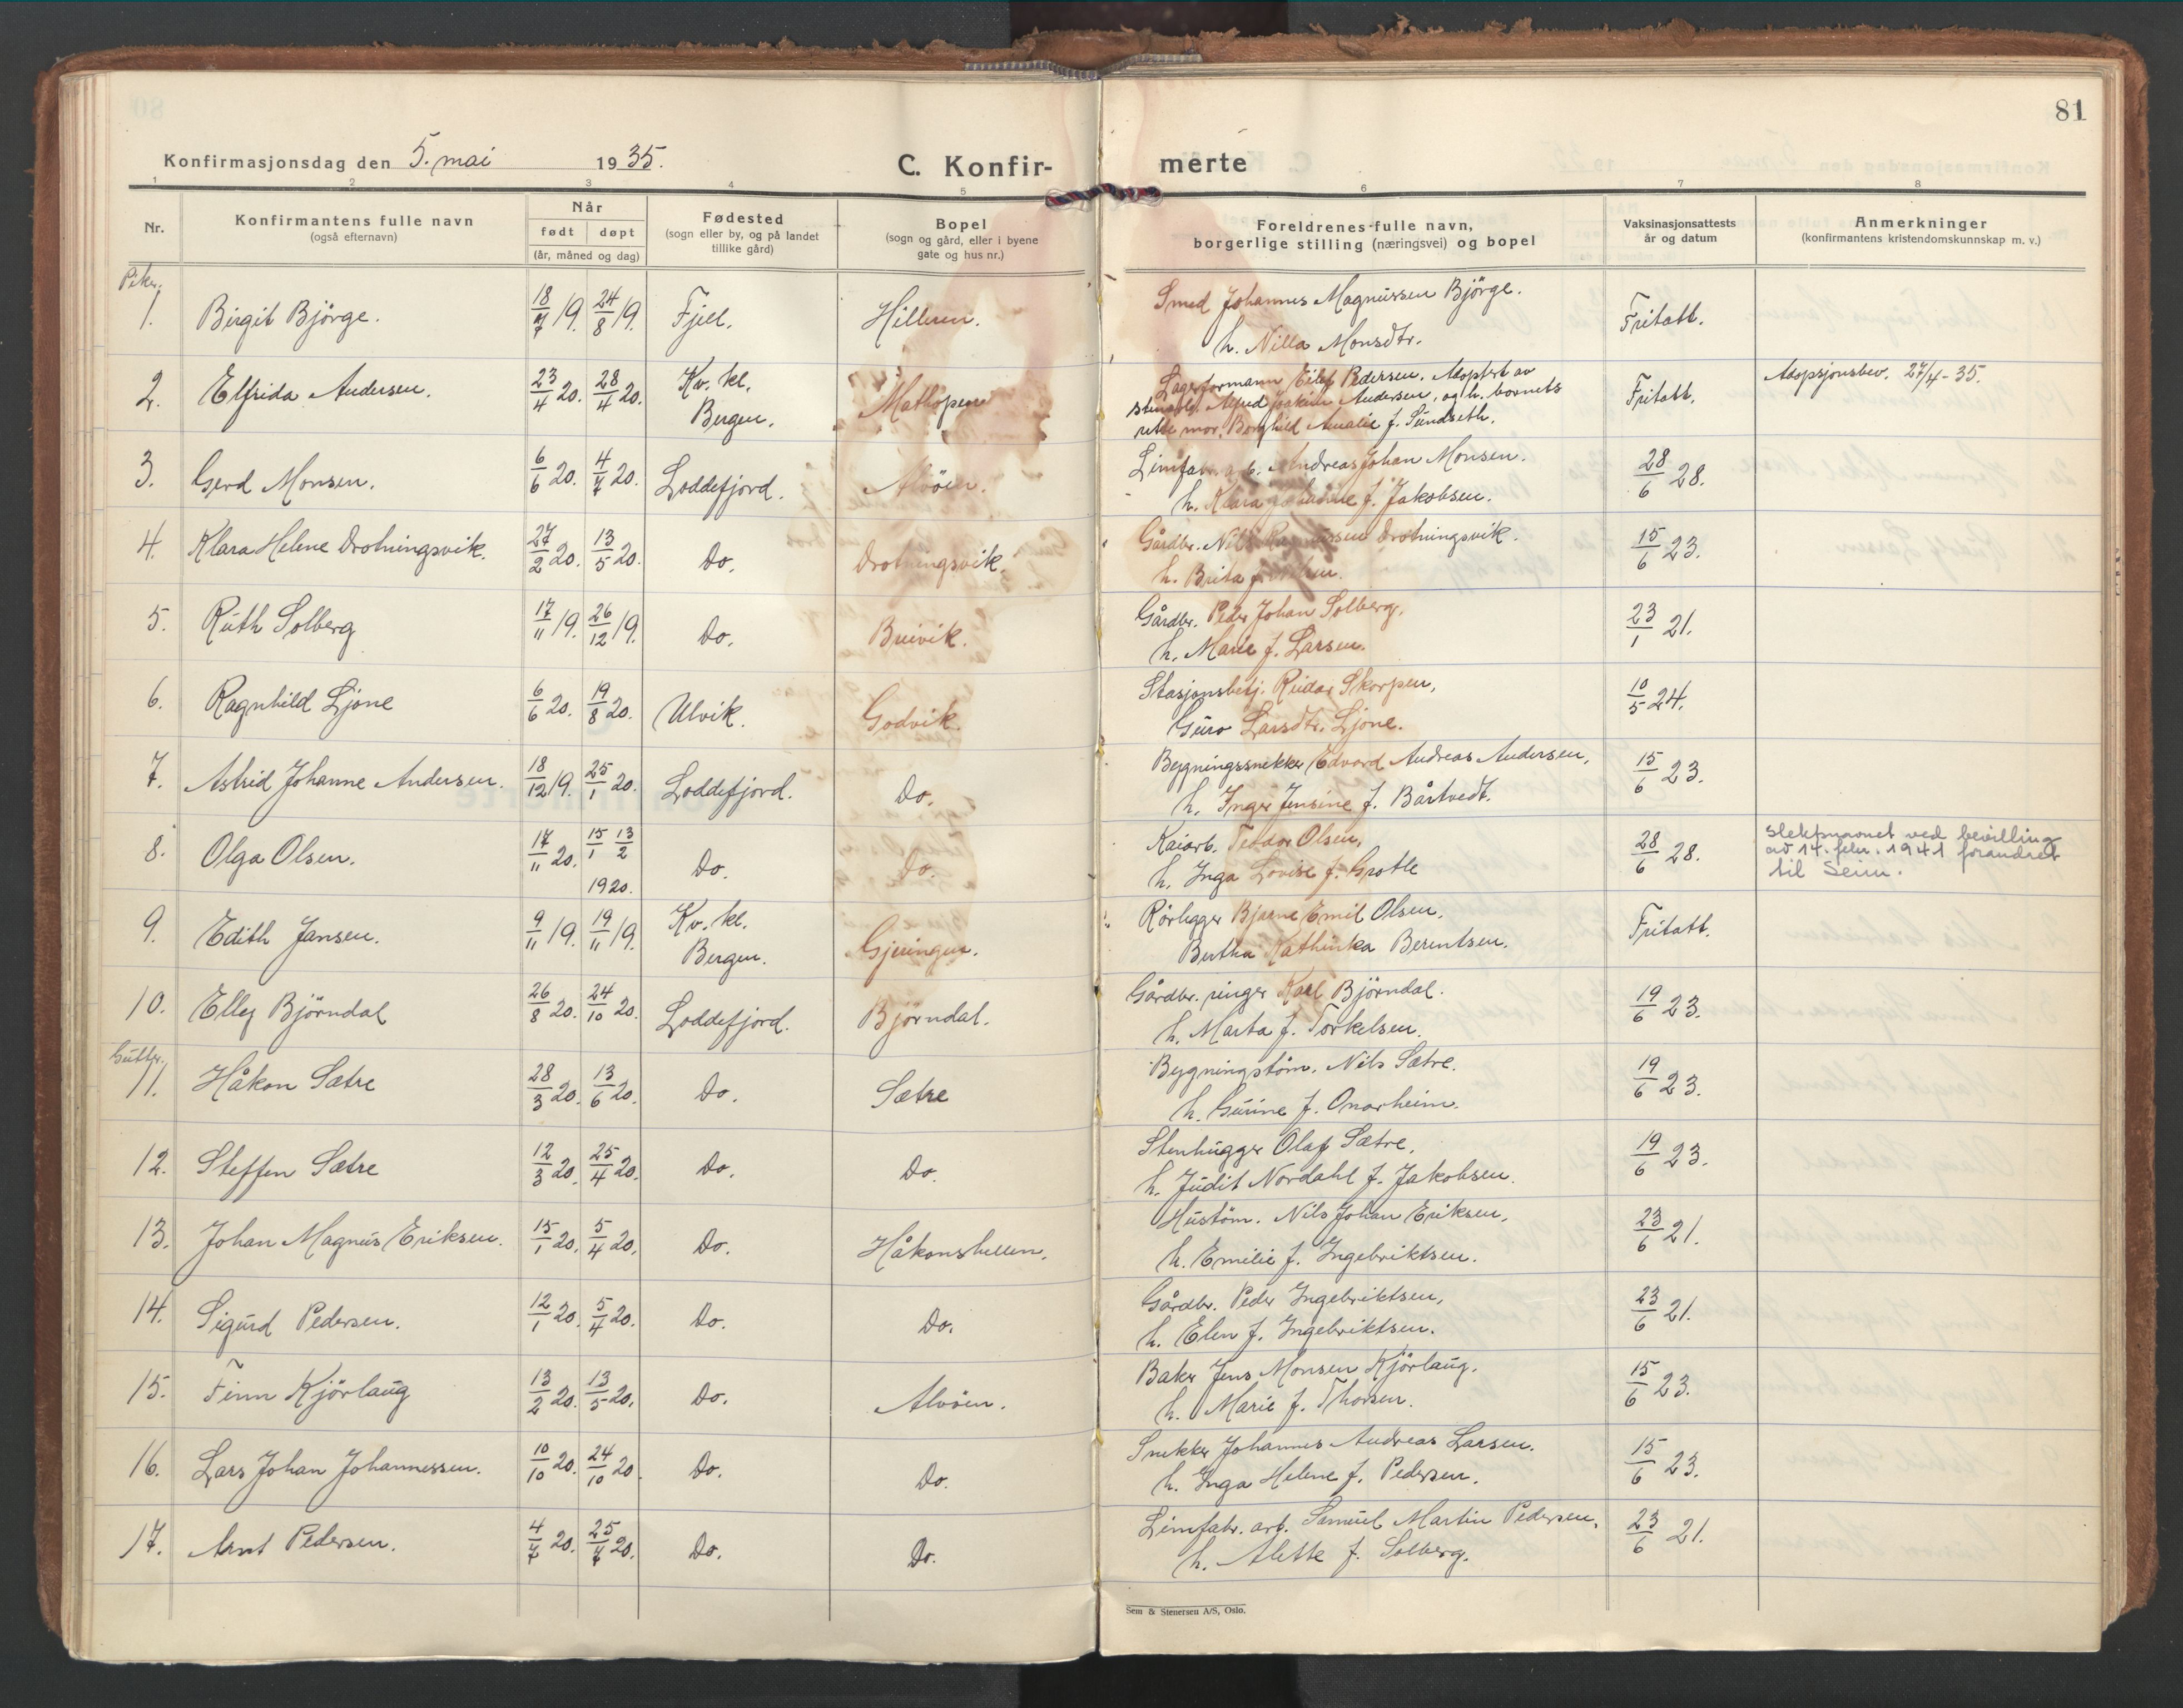 81
Konfirmasjonsdag den 5. mai 1935.
C. Konfirmerte
1 2 3 4 5 6 7 8
Nr.
Konfirmantens fulle navn
(også efternavn)
Når
født døpt
(år, måned og dag)
Fødested
(sogn eller by, og på landet
tillike gård)
Bopel
(sogn og gård, eller i byene
gate og hus nr.)
Foreldrenes fulle navn,
borgerlige stilling (næringsvei) og bopel
Vaksinasjonsattests
år og datum
Anmerkninger
(konfirmantens kristendomskunnskap m. v.)
Piker.
1. Birgit Björge. 18/7 19. 24/8 19. Fjell. Hilleren. Smed Johannes Magnussen Björge. Fritatt.
h. Nilla Monsdtr.
2. Elfrida Andersen. 23/4 20. 28/4 20. Kv. kl. Bergen. Mathopen Lagerformann Eilef Pedersen. Adoptert av Fritatt. Adopsjonsbev. 27/4-35.
Alfred Joakim Andersen, og h. barnets
rette mor, Borghild Amalie f. Sundseth.
3. Gerd Monsen. 6/6 20. 4/7 20. Loddefjord. Alvöen. Limfabr. arb. Andreas Johan Monsen. 28/6 28.
h. Klara f. Jakobsen.
4. Klara Helene Drotningsvik. 27/2 20. 13/5 20. Do. Drotningsvik. Gårdbr. Nils Rasmussen Drotningsvik. 15/6 23.
h. Brita f.
5. Ruth Solberg 17/11 19. 26/12 19. Do. Breivik. Gårdbr. Peder Johan Solberg. 23/1 21.
h. Marie f. Larsen.
6. Ragnhild Ljöne 6/6 20. 19/8 20. Ulvik. Godvik. Stasjonsbetj. Reidar Skorpen, 10/5 24.
Guro Larsdtr. Ljöne.
7. Astrid Johanne Andersen. 18/12 19. 25/1 20. Loddefjord. Do. Bygningssnekker Edvard Andreas Andersen, 15/6 23.
h. Inger Jensine f. Bårtvedt.
8. Olga Olsen. 17/11 20. 15/1 13/2 1920. Do. Do. Kaiarb. Teodor Olsen, 28/6 28. Slektsnavnet ved bevilling
av 14. febr. 1941 forandret
til Seim.
h. Inga Lovise f. Grotle
9. Edith Jansen. 9/11 19. 19/11 19. Kv. kl. Bergen. Gjeringen. Rörlegger Bjarne Emil Olsen. Fritatt.
Bertha Kathinka Berentsen.
10. Elley Björndal 26/8 20. 24/10 20. Loddefjord. Björndal. Gårdbr. ringer Karl Björndal. 19/6 23.
h. Marta f. Torkelsen.
Gutter.
11. Håkon Sætre 28/3 20. 13/6 20. Do. Sætre Bygningstöm. Nils Sætre. 19/6 23.
h. Gurine f. Onarheim.
12. Steffen Sætre 12/3 20. 25/4 20. Do. Do. Stenhugger Olaf Sætre. 19/6 23.
h. Judit Nordahl f. Jakobsen.
13. Johan Magnus Eriksen. 15/1 20. 5/4 20. Do. Håkonshellen. Hustöm. Nils Johan Eriksen, 23/6 21.
h. Emilie f. Ingebriktsen.
14. Sigurd Pedersen. 12/1 20. 5/4 20. Do. Do. Gårdbr. Peder Ingebriktsen, 23/6 21.
h. Elen f. Ingebriktsen.
15. Finn Kjörlaug 13/2 20. 13/5 20. Do. Alvöen. Baker Jens Monsen Kjörlaug. 15/6 23.
h. Marie f. Thorsen.
16. Lars Johan Johannessen. 10/10 20. 24/10 20. Do. Do. Snekker Johannes Andreas Larsen. 15/6 23.
h. Inga Helene f. Pedersen.
17. Arnt Pedersen. 4/7 20. 25/7 20. Do. Do. Limfabr. arb. Samuel Martin Pedersen, 23/6 21.
h. Alette f. Solberg.
Sem & Stenersen A/S, Oslo.